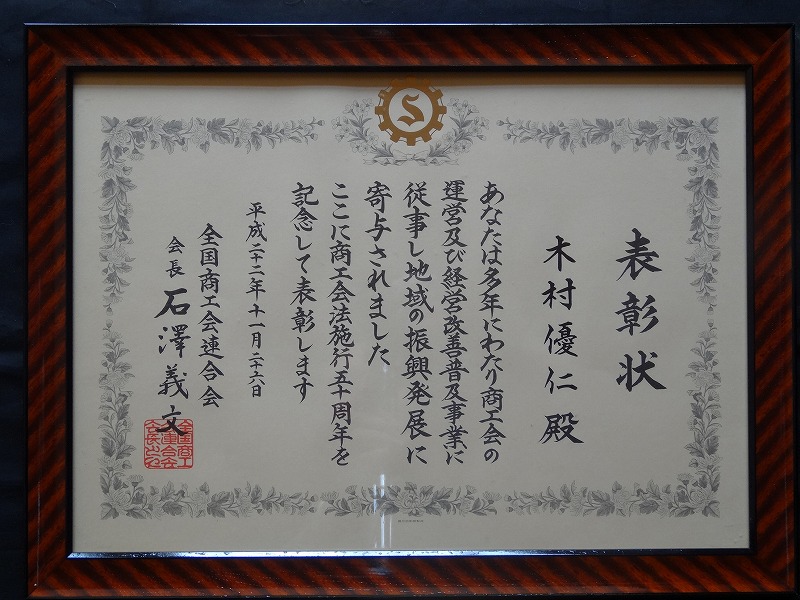 表彰状
木村優仁殿
あなたは多年にわたり商工会の
運営及び経営改善普及事業に
従事し地域の振興発展に
寄与されました
ここに商工会法施行五十周年を
記念して表彰します
平成二十二年十一月二十六日
全国商工会連合会
会長 石澤義文
S